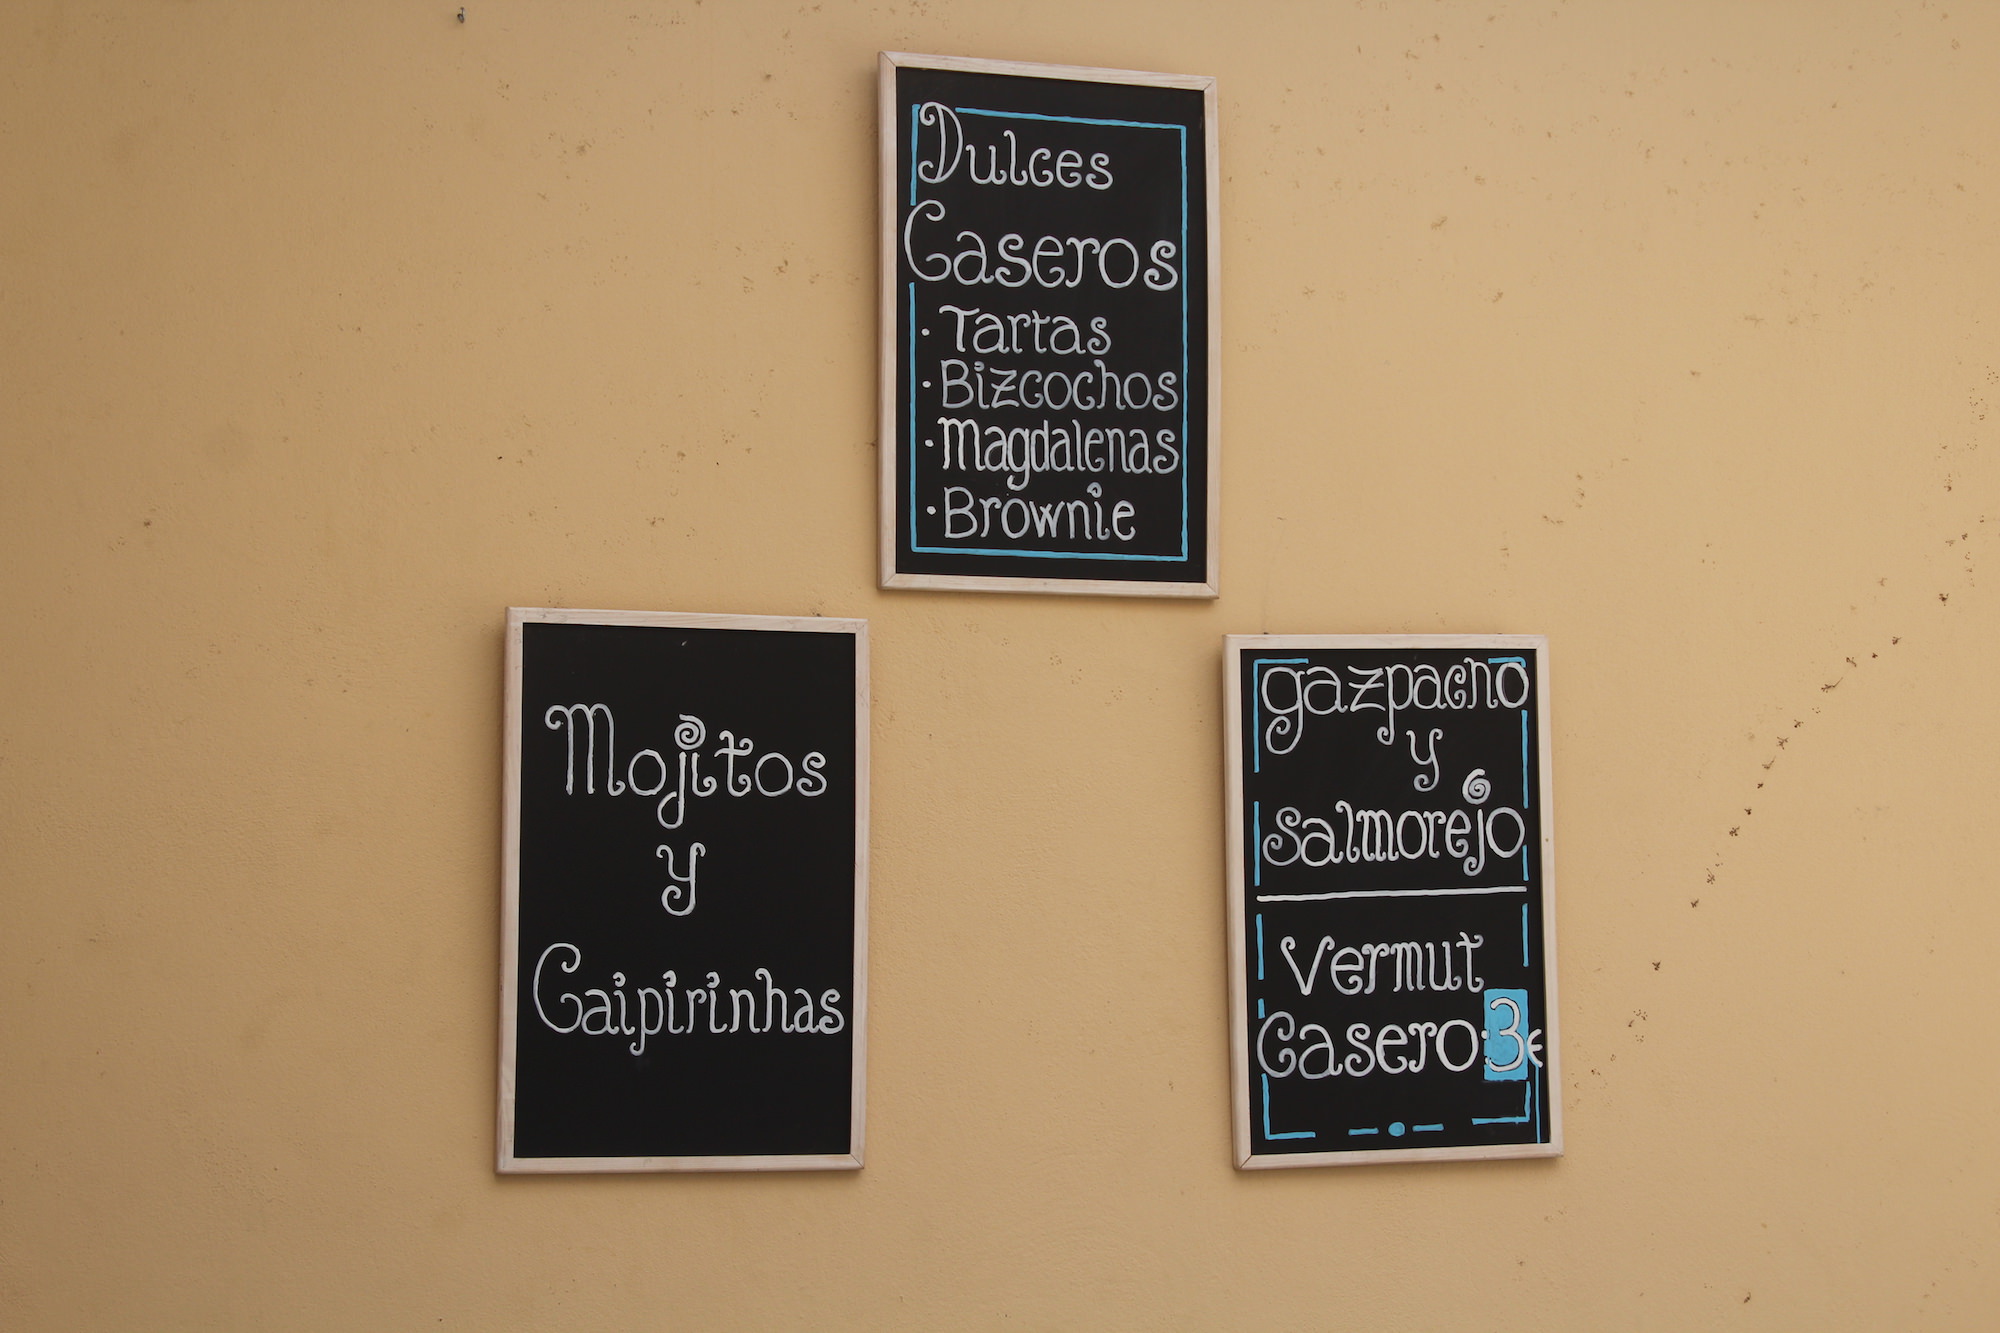 Dulces
Caseros
· Tartas
· Bizcochos
· Magdalenas
· Brownie
Mojitos
y
Caipirinhas
gazpacho
y
salmorejo
Vermut
Casero 3€